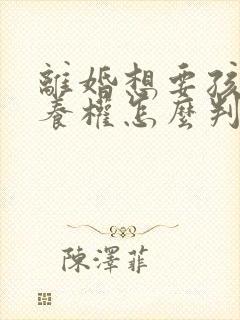 離婚想要孩
養權怎麼判
陳澤菲